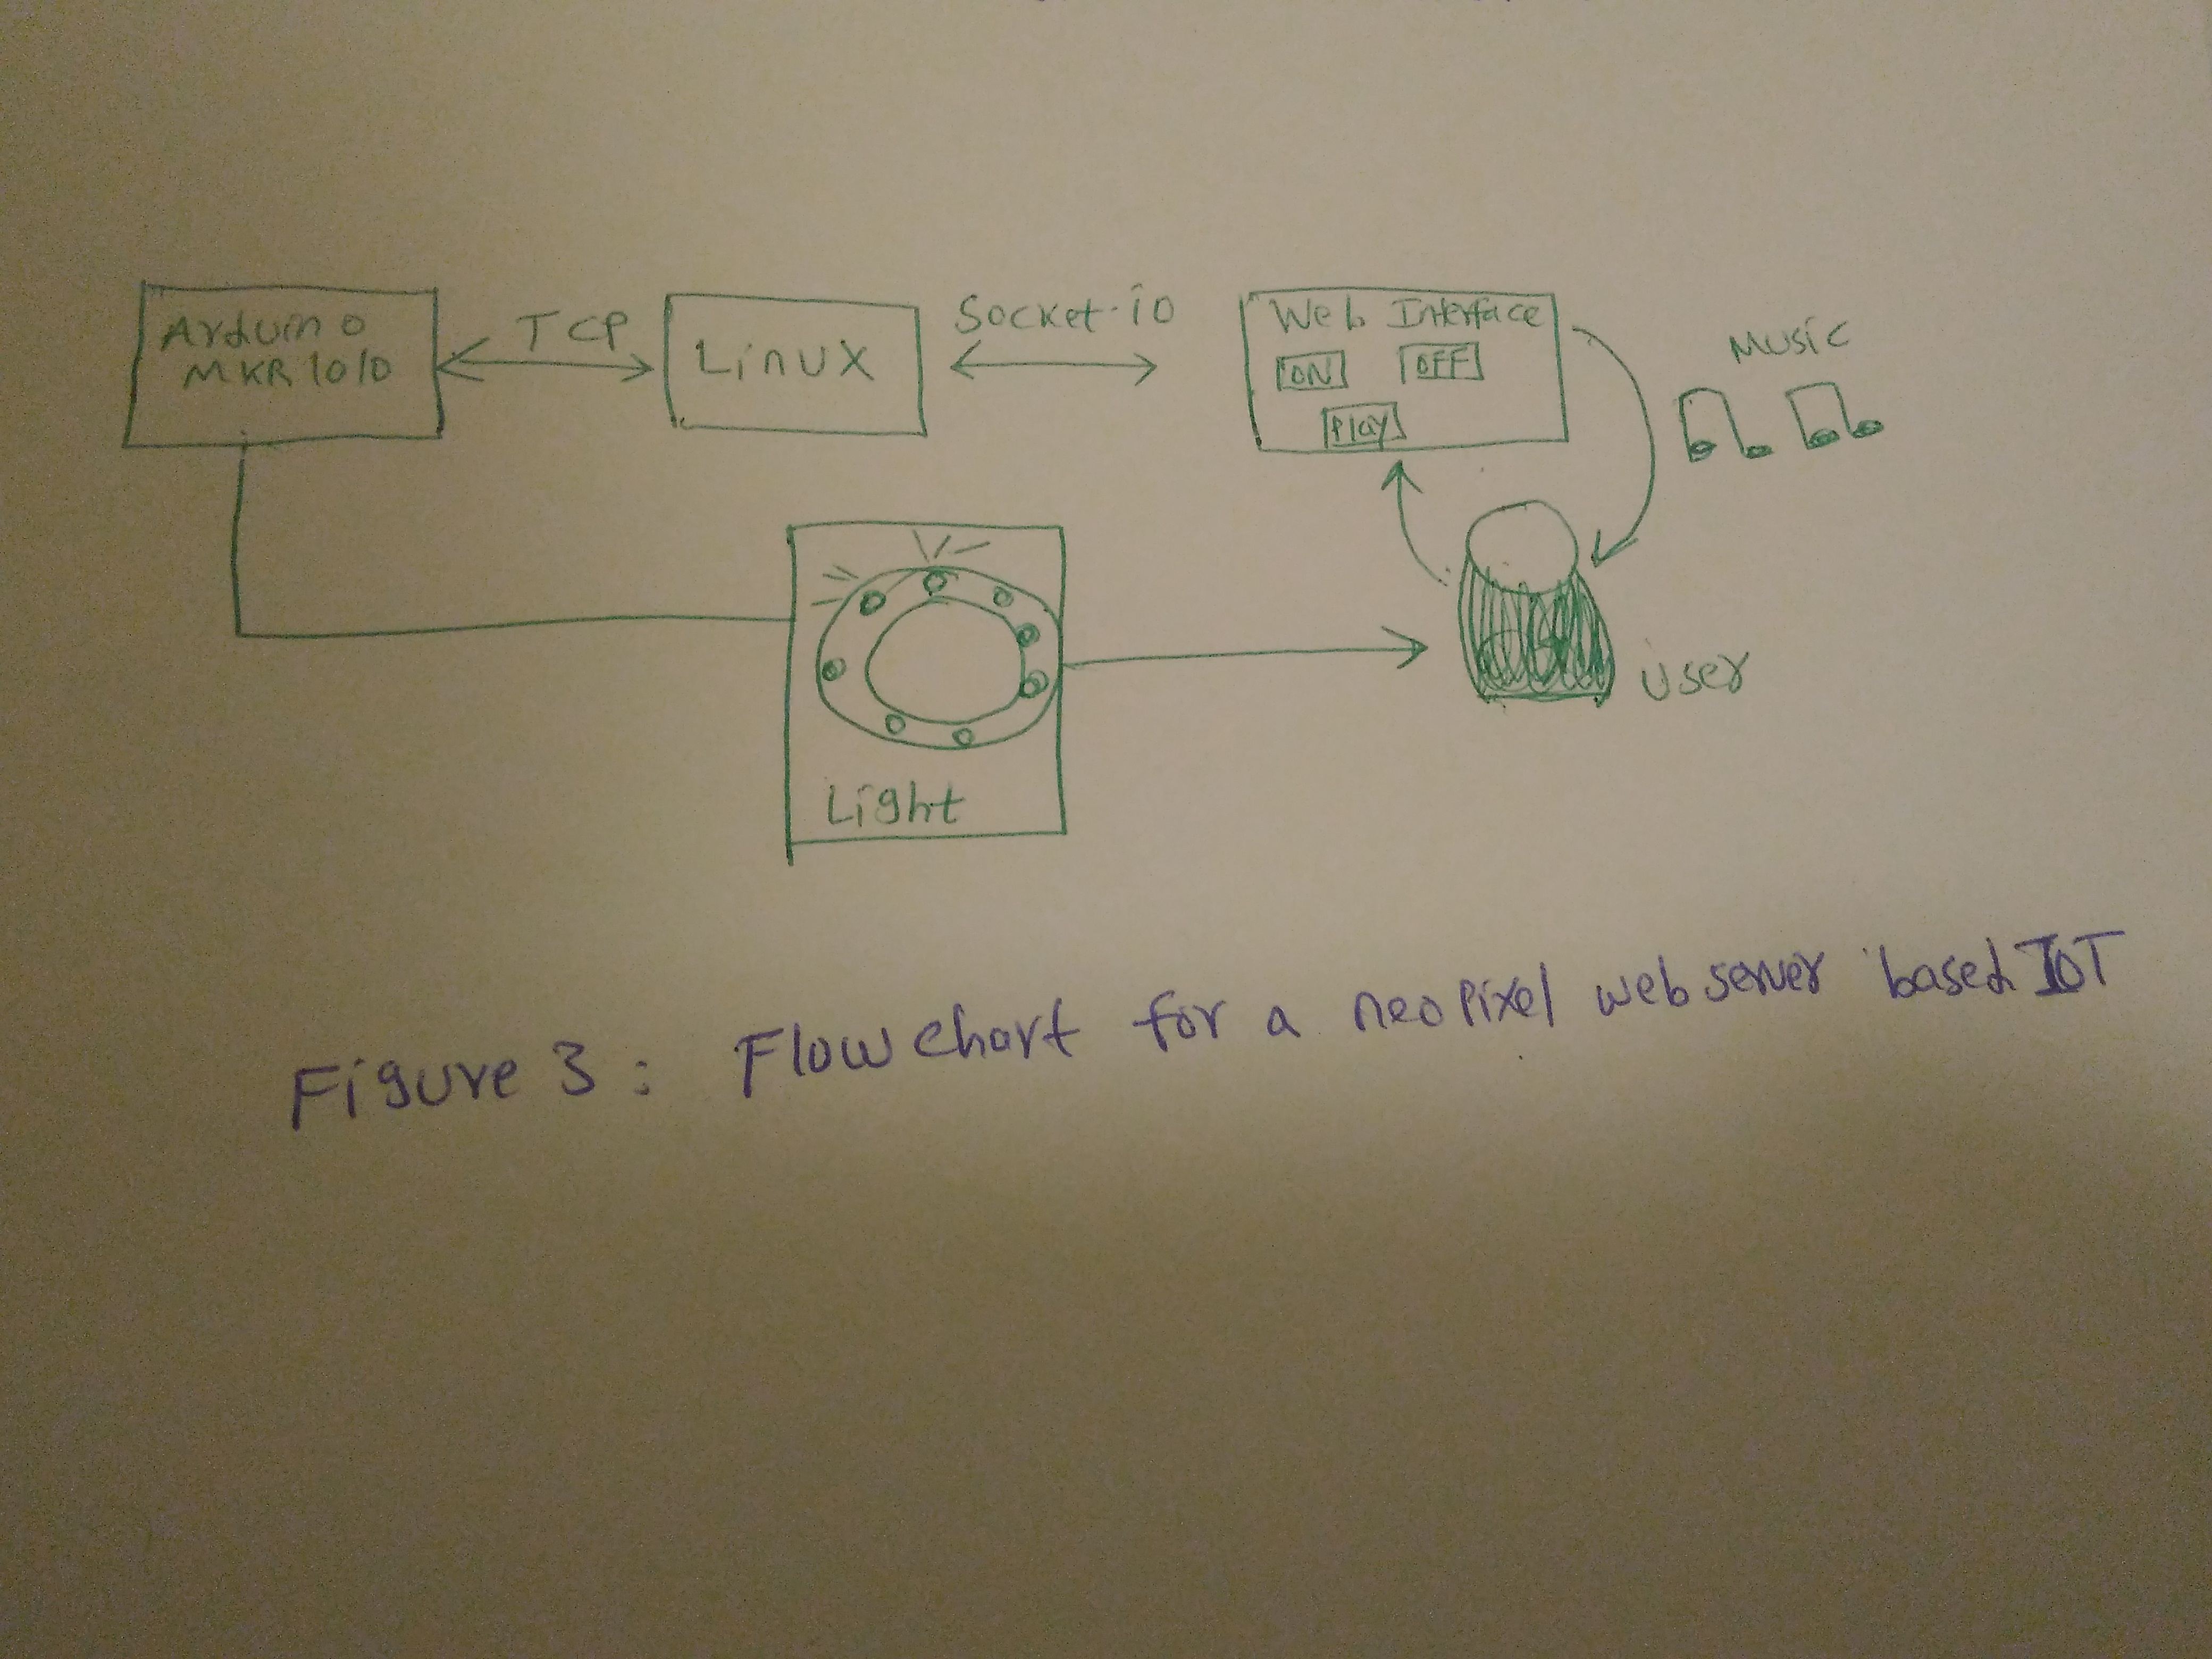 Arduino
MKR1010
TCP
LinUX
Socket-io
Web Interface
ON
OFF
Play
Music
Light
User
Figure 3: Flowchart for a neopixel webserver based IOT